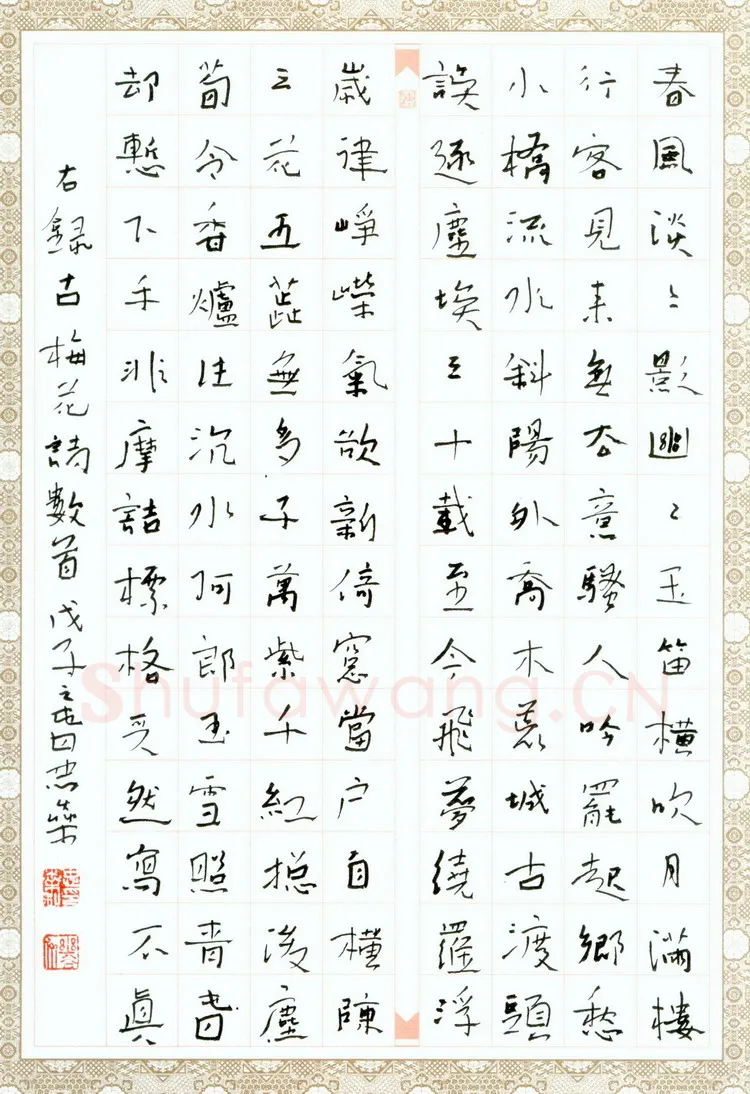 春風淡〻影幽〻玉笛橫吹月滿樓
行客見来無去意騷人吟罷起鄉愁
小橋流水斜陽外喬木荒城古渡頭
誤逐塵埃三十載至今飛夢繞羅浮
歲律崢嶸氣欲新倚窓當户自橫陳
三花五蕋無多子萬紫千紅揔後塵
荀令香爐住沉水何郎玉雪照青旾
却慙下手非摩詰標格天然寫不眞
右錄古梅花詩數首戊子之旾忠榮
Shufawang.CN